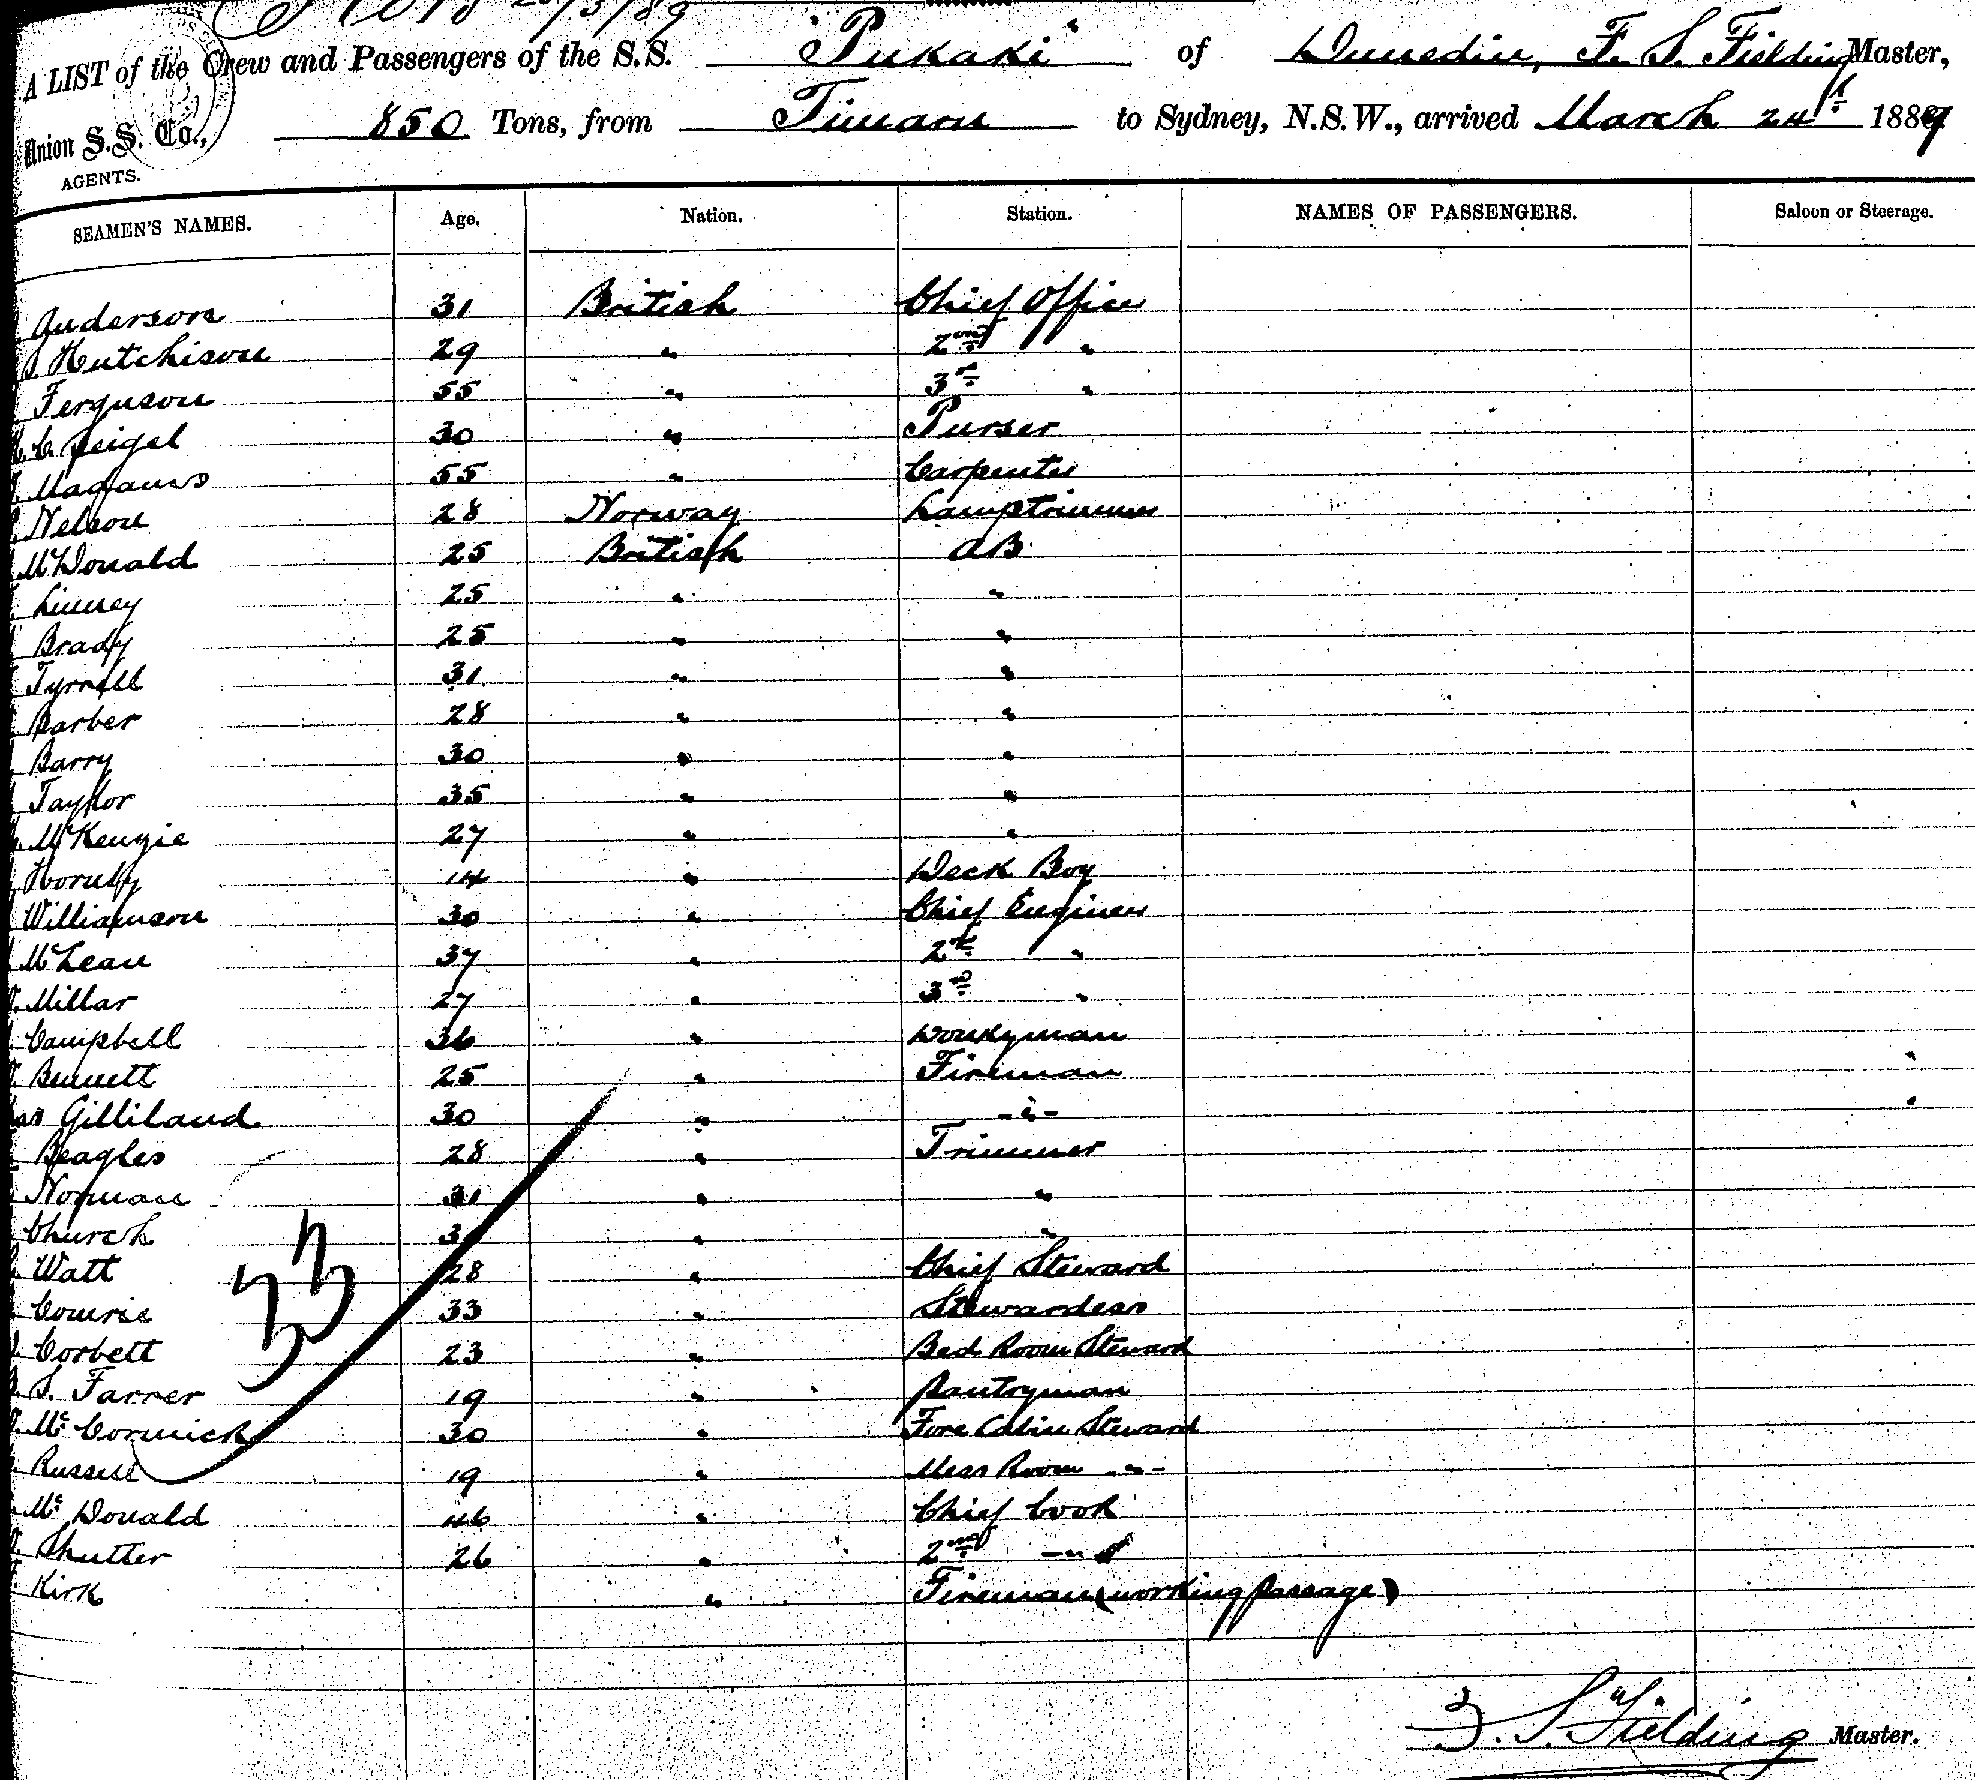 25/3/89
A LIST of the Crew and Passengers of the S.S. "Pukaki" of Dunedin, F. S. Fielding Master,
Union S.S. Co., 850 Tons, from Timaru to Sydney, N.S.W., arrived March 24th 1889
AGENTS.
SEAMEN'S NAMES. Age. Nation. Station. NAMES OF PASSENGERS. Saloon or Steerage.
Anderson 31 British Chief Officer
Hutchison 29 " 2nd "
Ferguson 55 " 3rd "
C. 30 " Purser
55 " Carpenter
Nelson 28 Norway Lamptrimmer
McDonald 25 British AB
25 " "
Brady 25 " "
Tyrrell 31 " "
Barber 28 " "
Barry 30 " "
Taylor 35 " "
McKenzie 27 " "
Hornby 14 " Deck Boy
Williamson 30 " Chief Engineer
McLean 37 " 2nd "
Millar 27 " 3rd "
Campbell 36 " Donkyman
Bennett 25 " Fireman
Gilliland 30 " -"-
Beagles 28 " Trimmer
Norman 31 " "
Church " "
Watt 28 " Chief Steward
Comrie 33 " Stewardess
Corbett 23 " Bed Room Steward
S. Farrer 19 " Pantryman
McCormick 30 " Fore Cabin Steward
Russell 19 " Mess Room -"-
McDonald 46 " Chief Cook
Shutter 26 " 2nd -"-
Kirk " Fireman (working passage)
33
F. S. Fielding Master.